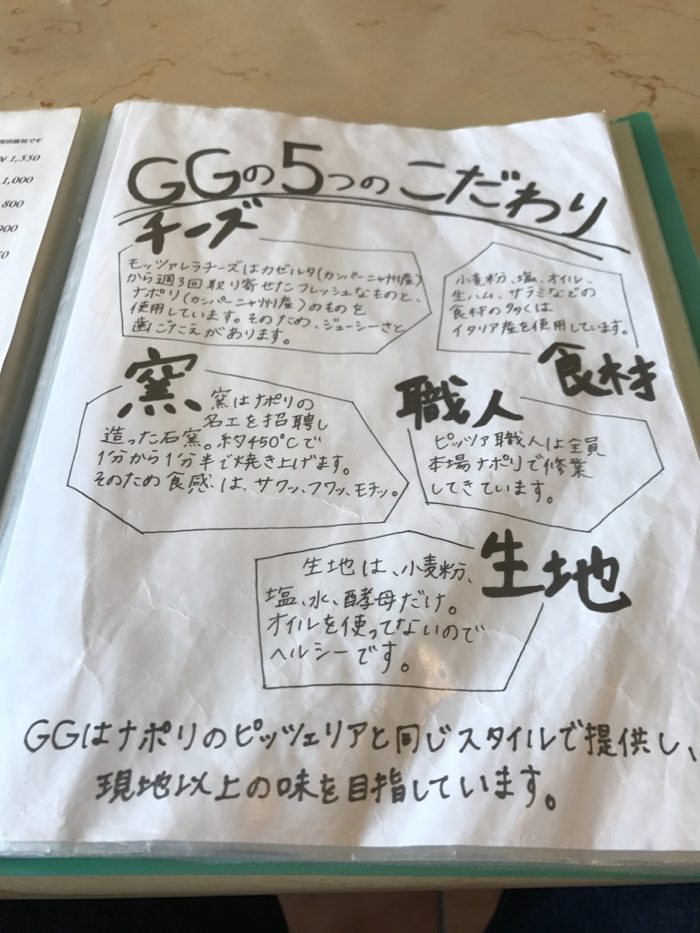 別価格です
¥1,550
1,000
800
900
GGの5つのこだわり
チーズ
モッツァレラチーズはカゼルタ(カンパーニャ州産)
から週3回取り寄せたフレッシュなものと、
ナポリ(カンパーニャ州産)のものを
使用しています。そのため、ジューシーさと
歯ごたえがあります。
小麦粉、塩、オイル、
生ハム、サラミなどの
食材の多くは
イタリア産を使用しています。
食材
窯
窯はナポリの
名工を招聘し
造った石窯。約450℃で
1分から1分半で焼き上げます。
そのため食感は、サクッ、フワッ、モチッ。
職人
ピッツァ職人は全員
本場ナポリで修業
してきています。
生地
生地は、小麦粉、
塩、水、酵母だけ。
オイルを使ってないので
ヘルシーです。
GGはナポリのピッツェリアと同じスタイルで提供し、
現地以上の味を目指しています。